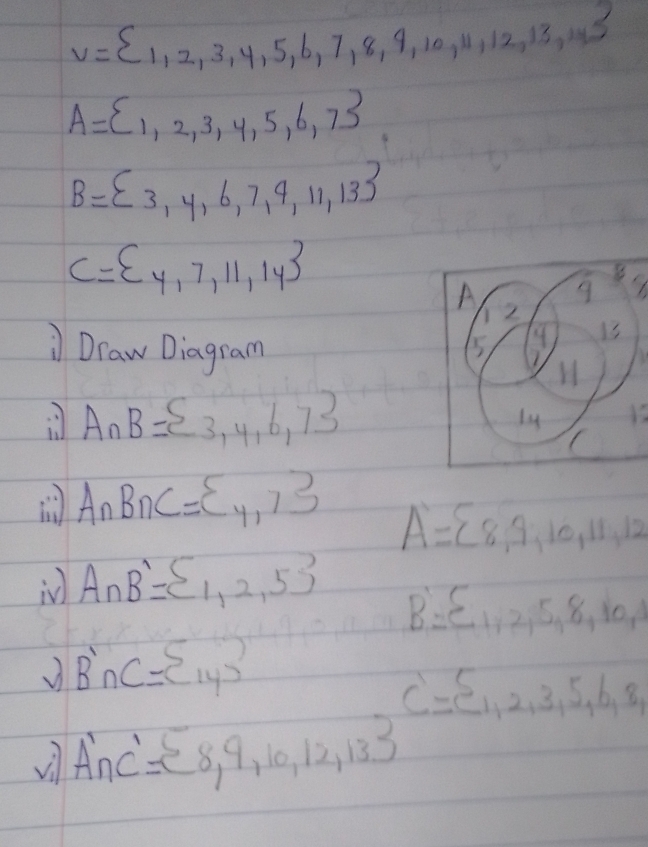 v={1,2,3,4,5,6,7,8,9,10,11,12,13,14}
A={1,2,3,4,5,6,7}
B={3,4,6,7,9,11,13}
C={4,7,11,14}
i) Draw Diagram
A
B
9
8
1
2
4
13
5
7
11
14
12
C
ii) AnB={3,4,6,7}
iii) AnBnC={4,7}
A'={8,9,10,11,12
iv) AnB'={1,2,5}
B'={1,2,5,8,10,1
v) B'nC={14}
C'={1,2,3,5,6,8,
vi) A'nC'={8,9,10,12,13}